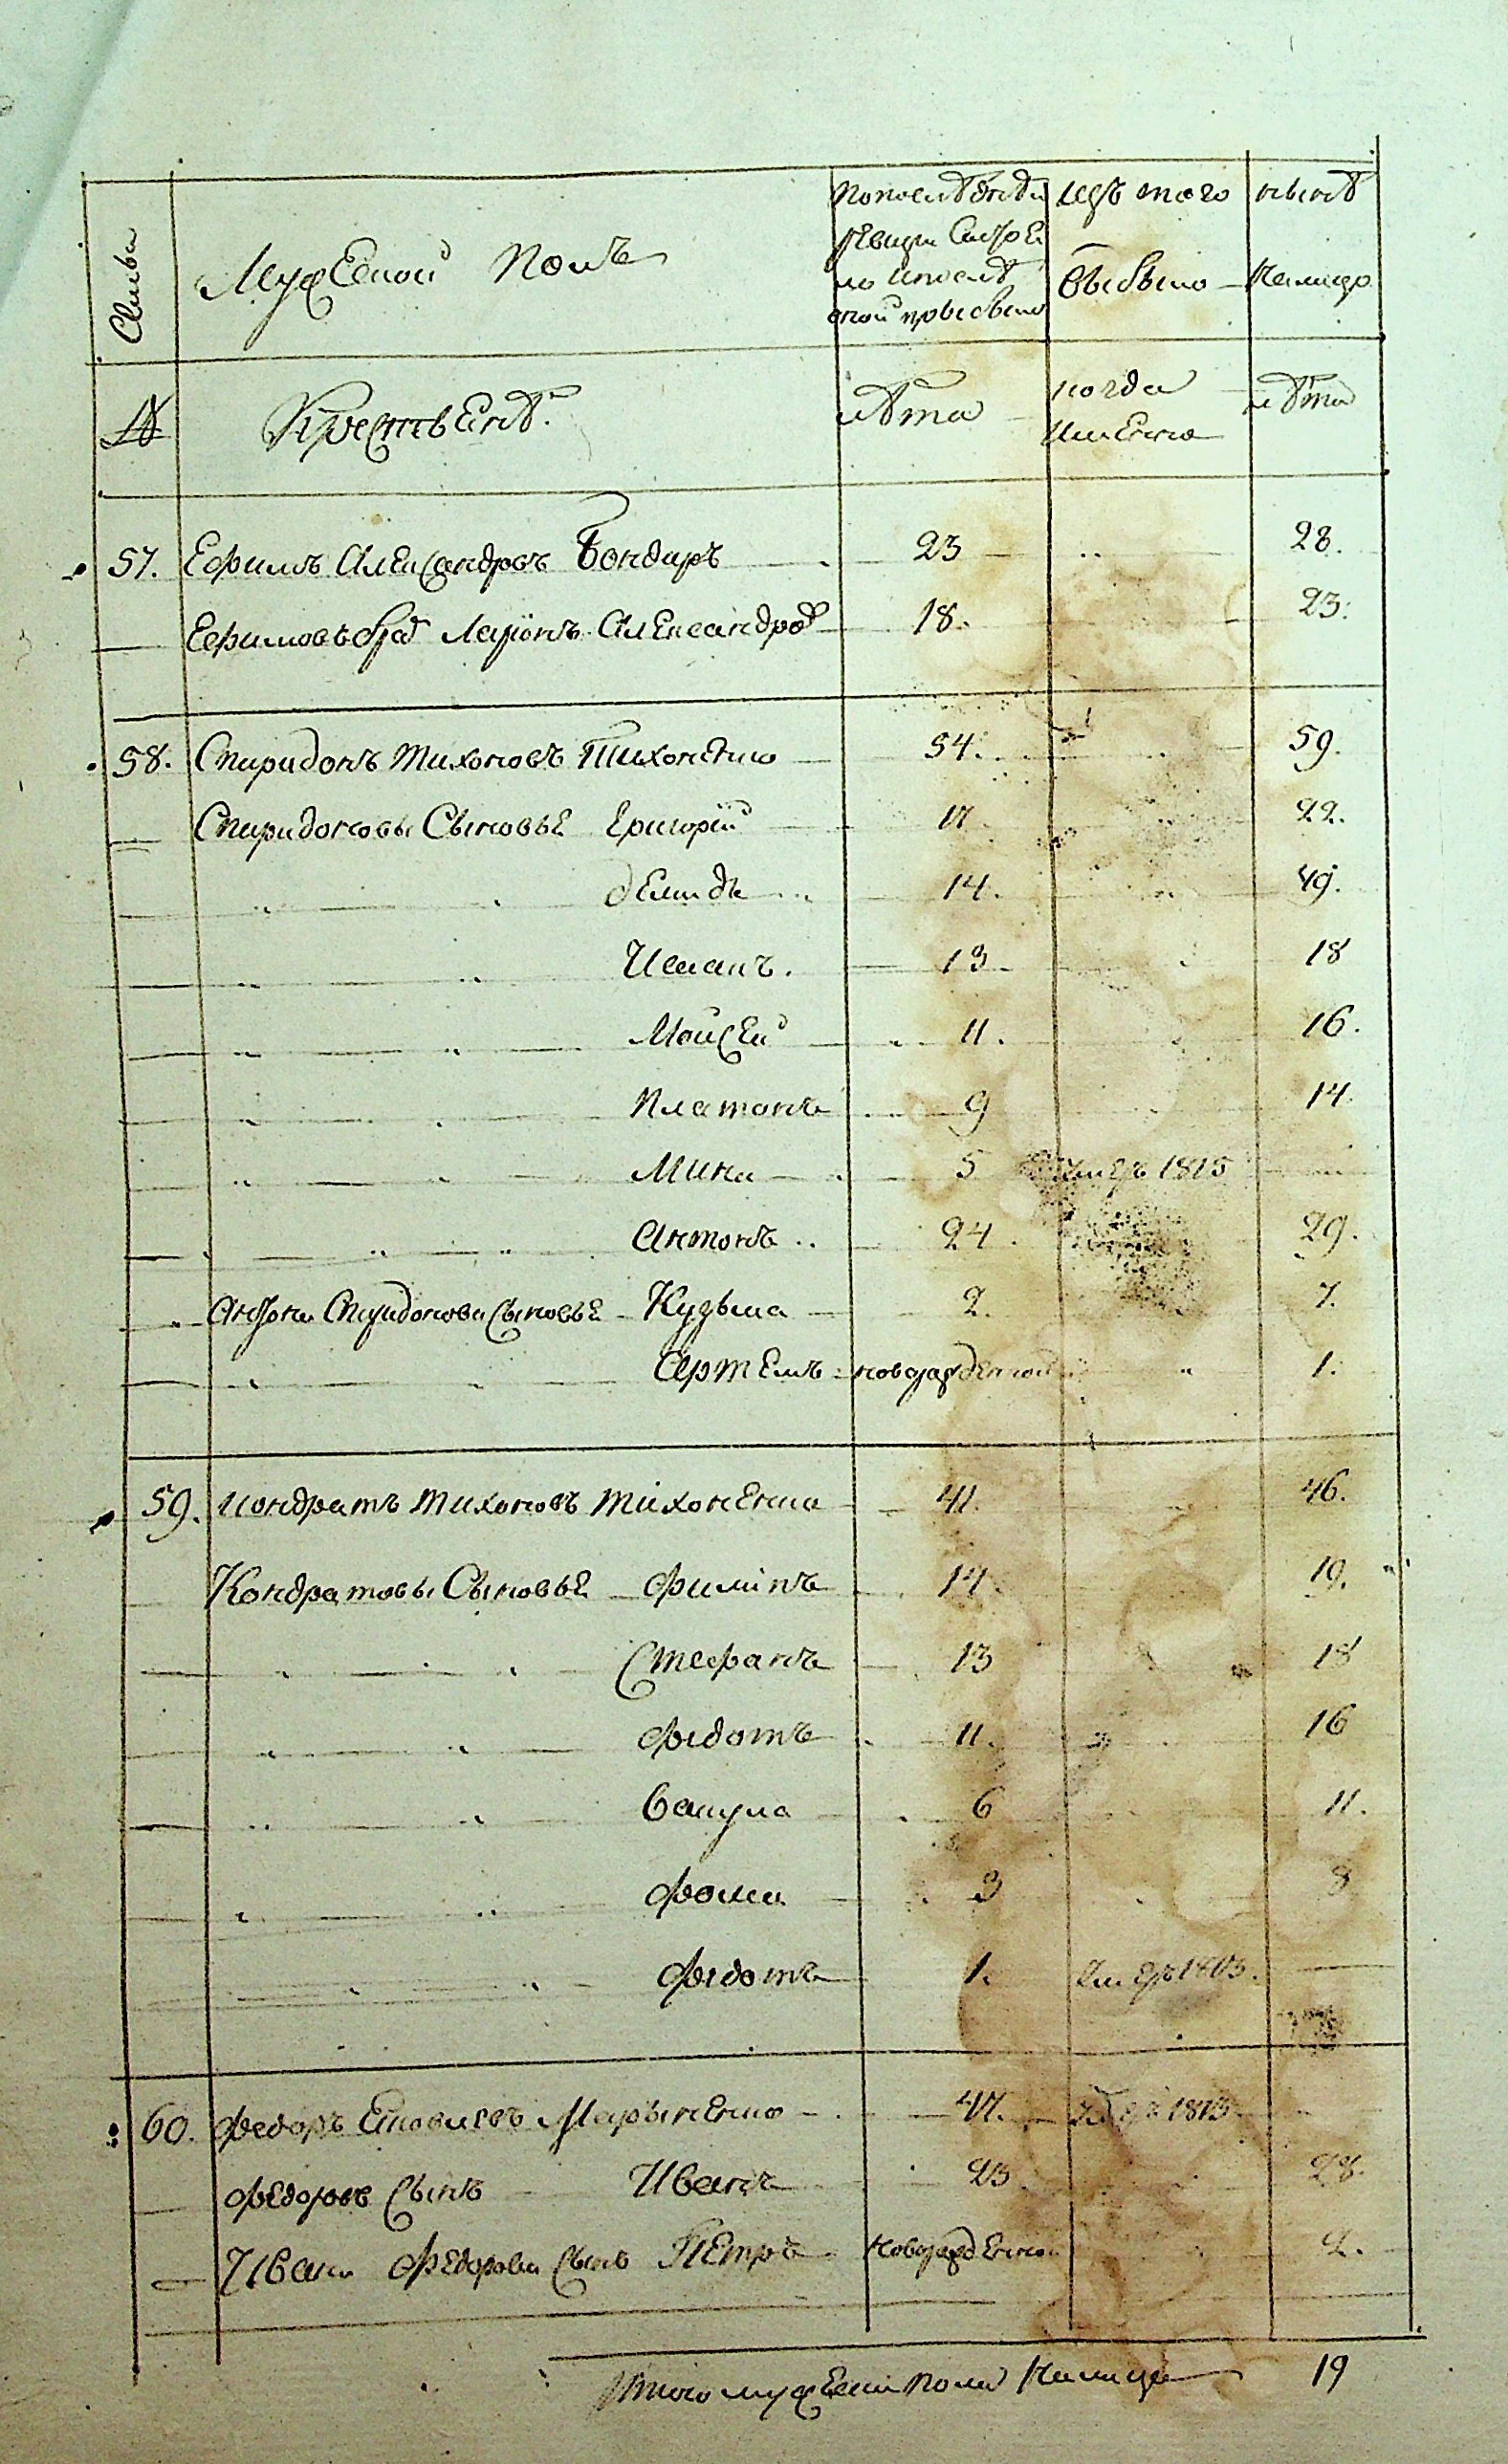 Семьи
Мужеской полъ
По последнѣй ревизіи состояло и после оной прибыло
Изъ того выбыло
Нынѣ налицо
№
Крестьянѣ.
лѣта
когда имянно
лѣта
57. Ефимъ Александровъ Бондаръ 23 28.
Ефимовъ братъ Ларіонъ Александровъ 18. 23.
58. Спиридонъ Тихоновъ Тихоненко 54. 59.
Спиридоновы Сыновье Григорій 17 22.
Демидъ 14. 19.
Исаакъ. 13 18
Мойсей 11. 16.
Платонъ 9 14.
Мина 5 умеръ 1815
Антонъ 24. 29.
Антона Спиридонова Сыновье Кузьма 2. 7.
Артемъ новорожденной 1.
59. Кондратъ Тихоновъ Тихоненко 41. 46.
Кондратовы Сыновье Филипъ 14. 19.
Стефанъ 13 18
Федотъ 11. 16
Вакула 6 11.
Фома 3 8
Федотъ 1. умеръ 1813.
60. Федоръ Яковлевъ Марыненко 47. умеръ 1813
Федоровъ Сынъ Иванъ 23 28.
Ивана Федорова Сынъ Петръ новорожденной 2.
Итого мужеска пола налицо 19